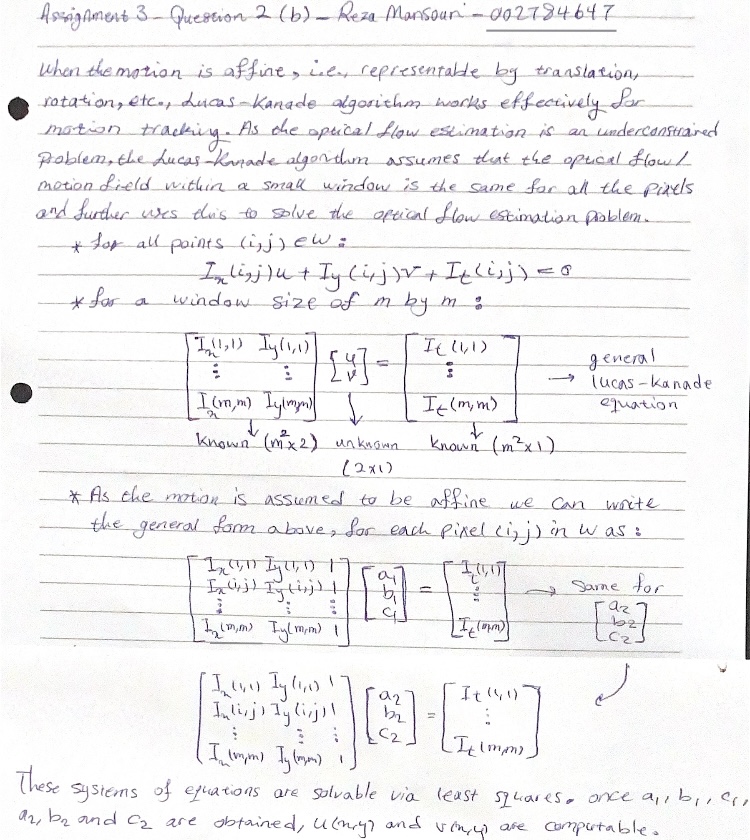 Assignment 3 - Question 2 (b) - Reza Mansouri - 002784647
When the motion is affine, i.e., representable by translation,
rotation, etc., Lucas-Kanade algorithm works effectively for
motion tracking. As the optical flow estimation is an underconstrained
problem, the Lucas-Kanade algorithm assumes that the optical flow/
motion field within a small window is the same for all the pixels
and further uses this to solve the optical flow estimation problem.
* for all points (i,j) ∈ W :
Iₓ(i,j)u + Iy(i,j)v + It(i,j) = 0
* for a window size of m by m :
[Iₓ(1,1) Iy(1,1) ⋮ ⋮ Iₓ(m,m) Iy(m,m)] [u v] = [It(1,1) ⋮ It(m,m)] → general
lucas-kanade
equation
↓ known (m²x2) ↓ unknown ↓ known (m²x1)
(2x1)
* As the motion is assumed to be affine we can write
the general form above, for each pixel (i,j) in W as :
[Iₓ(1,1) Iy(1,1) 1 Iₓ(i,j) Iy(i,j) 1 ⋮ ⋮ ⋮ Iₓ(m,m) Iy(m,m) 1] [a₁ b₁ c₁] = [It(1,1) ⋮ It(m,m)] → same for
[a₂ b₂ c₂]
[Iₓ(1,1) Iy(1,1) 1 Iₓ(i,j) Iy(i,j) 1 ⋮ ⋮ ⋮ Iₓ(m,m) Iy(m,m) 1] [a₂ b₂ c₂] = [It(1,1) ⋮ It(m,m)]
These systems of equations are solvable via least squares. once a₁, b₁, c₁,
a₂, b₂ and c₂ are obtained, u(x,y) and v(x,y) are computable.